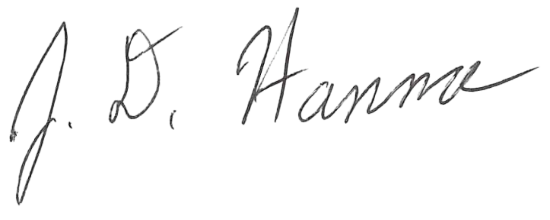 J. D. Hanna